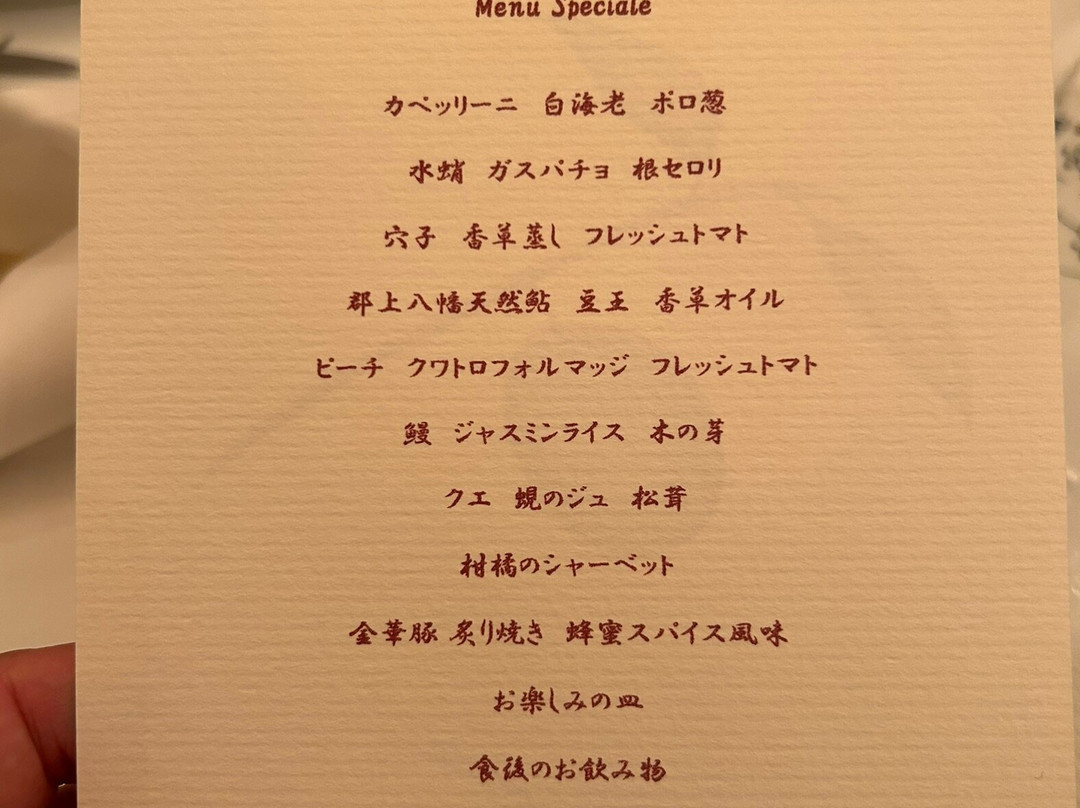 Menu Speciale
カペッリーニ 白海老 ポロ葱
水蛸 ガスパチョ 根セロリ
穴子 香草蒸し フレッシュトマト
郡上八幡天然鮎 豆王 香草オイル
ピーチ クワトロフォルマッジ フレッシュトマト
鰻 ジャスミンライス 木の芽
クエ 蜆のジュ 松茸
柑橘のシャーベット
金華豚 炙り焼き 蜂蜜スパイス風味
お楽しみの皿
食後のお飲み物